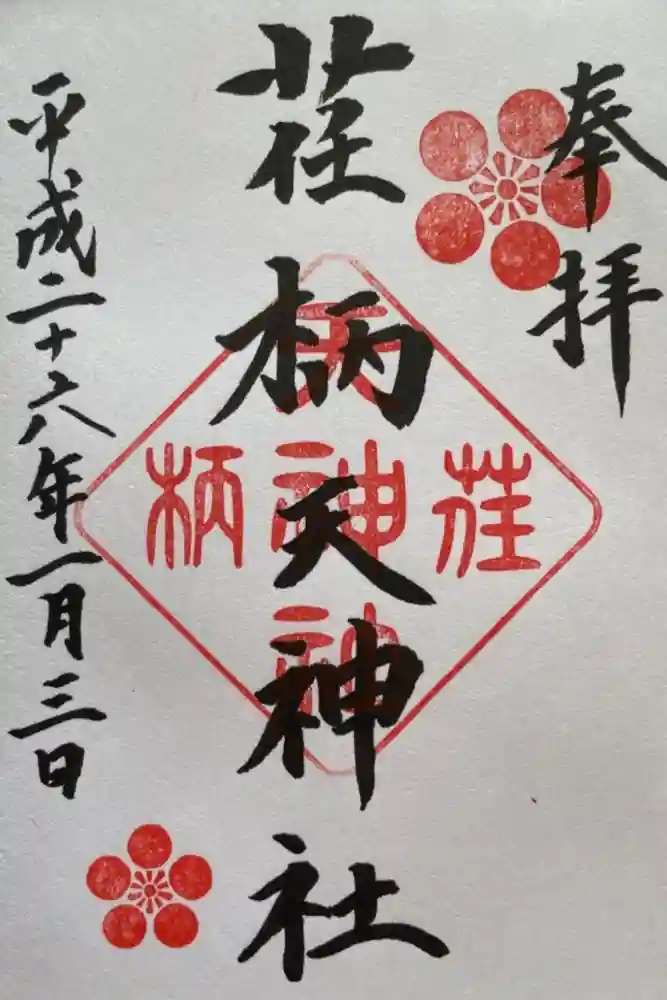 奉拝
荏柄天神社
平成二十六年一月三日
荏
柄
天
神